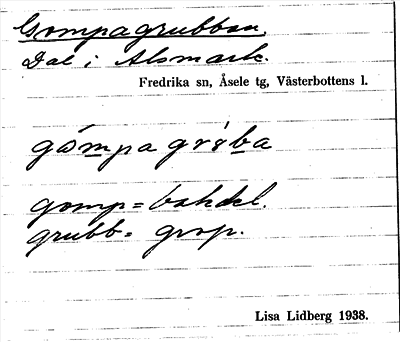 Gompagrubban.
Dal i Alsmark.
Fredrika sn, Åsele tg, Västerbottens l.
gómpa grŏ́ba
gomp = bakdel.
grubb = grop.
Lisa Lidberg 1938.